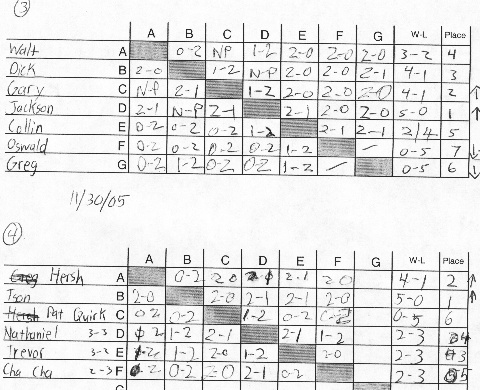 (3)
A B C D E F G W-L Place
Walt A 0-2 NP 1-2 2-0 2-0 2-0 3-2 4
Dick B 2-0 1-2 N-P 2-0 2-0 2-1 4-1 3
Gary C N-P 2-1 1-2 2-0 2-0 2-0 4-1 2 ↑
Jackson D 2-1 N-P 2-1 2-1 2-0 2-0 5-0 1 ↑
Collin E 0-2 0-2 0-2 1-2 2-1 2-1 2/4 5
Oswald F 0-2 0-2 0-2 0-2 1-2 / 0-5 7 ↓
Greg G 0-2 1-2 0-2 0-2 1-2 / 0-5 6 ↓
11/30/05
(4)
A B C D E F G W-L Place
Hersh A 0-2 2 0 2-1 2 0 4-1 2 ↑
B 2-0 2-0 2-1 2-1 2-0 5-0 1 ↑
Pat Quirk C 0 2 0-2 1-2 0-2 0-5 6
Nathaniel 3-3 D 1-2 2-1 2-1 1-2 2-3 4
Trevor 3-2 E 1-2 1-2 2-0 1-2 2-0 2-3 3
Cha Cha 2-3 F 0-2 2-0 2-1 0-2 2-3 5
G